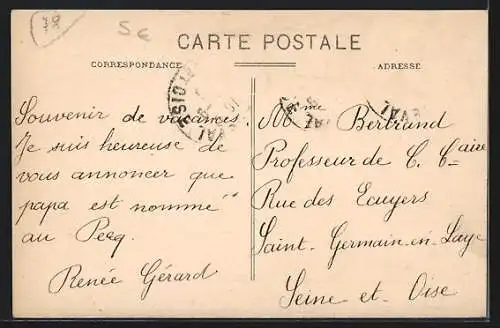 78
5€
CARTE POSTALE
CORRESPONDANCE
ADRESSE
Souvenir de vacances.
Je suis heureuse de
vous annoncer que
papa est nommé
au Pecq.
Renée Gérard
Mme Bertrand
Professeur de C. Cre
Rue des Ecuyers
Saint-Germain-en-Laye
Seine-et-Oise